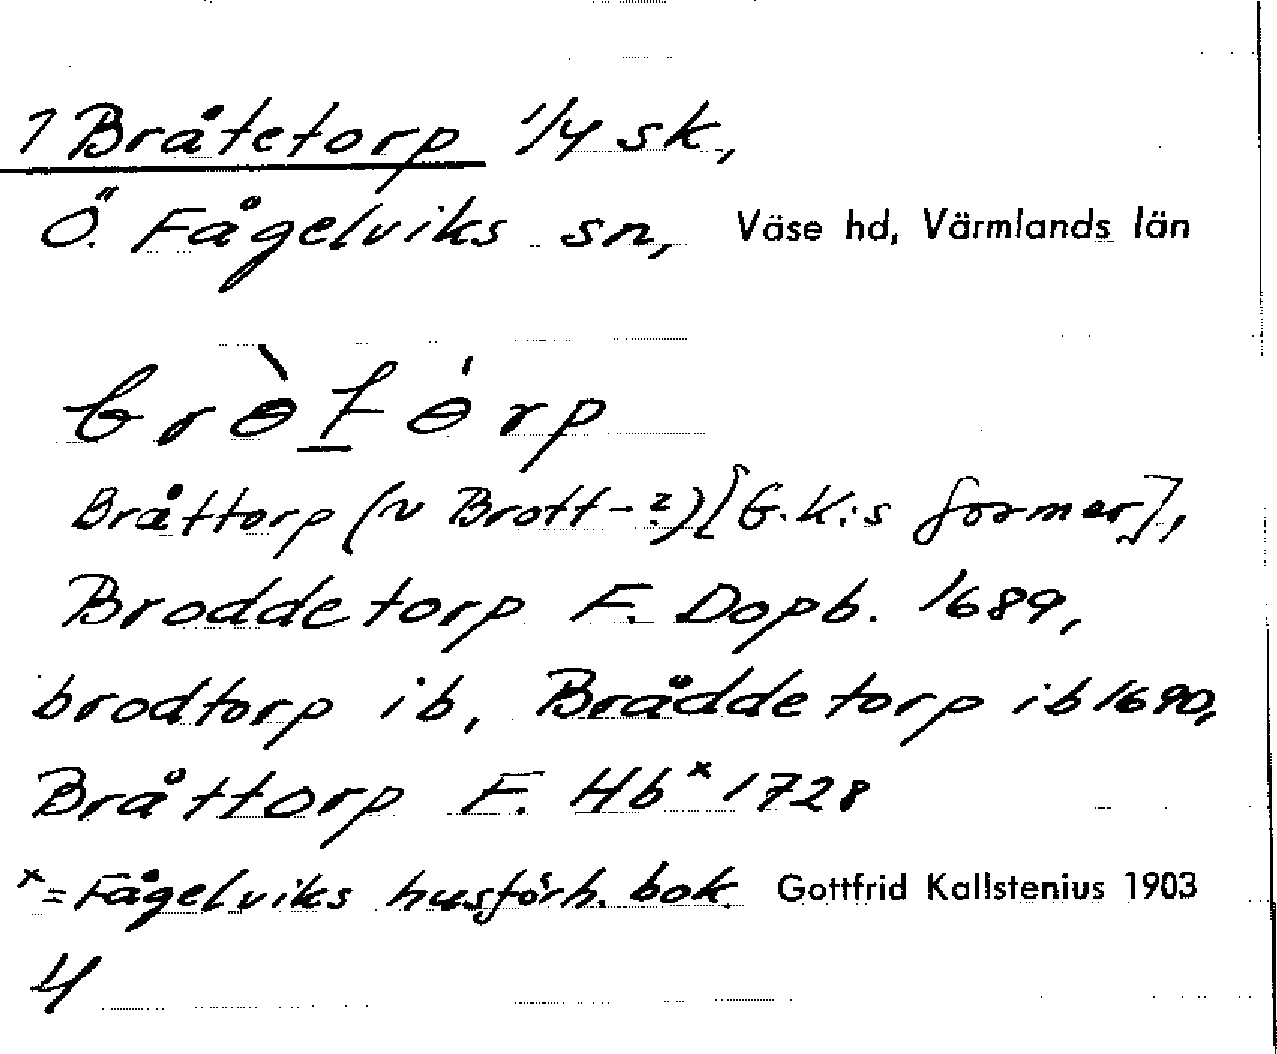 1 Bråtetorp 1/4 sk.,
Ö. Fågelviks sn, Väse hd, Värmlands län
brɵ̀t̲ɵ́rp
Bråttorp (~ Brott-?) [G.K:s former],
Broddetorp F. Dopb. 1689,
brodtorp ib, Bråddetorp ib 1690,
Bråttorp F. Hb x 1728
x = Fågelviks husförh. bok. Gottfrid Kallstenius 1903
4